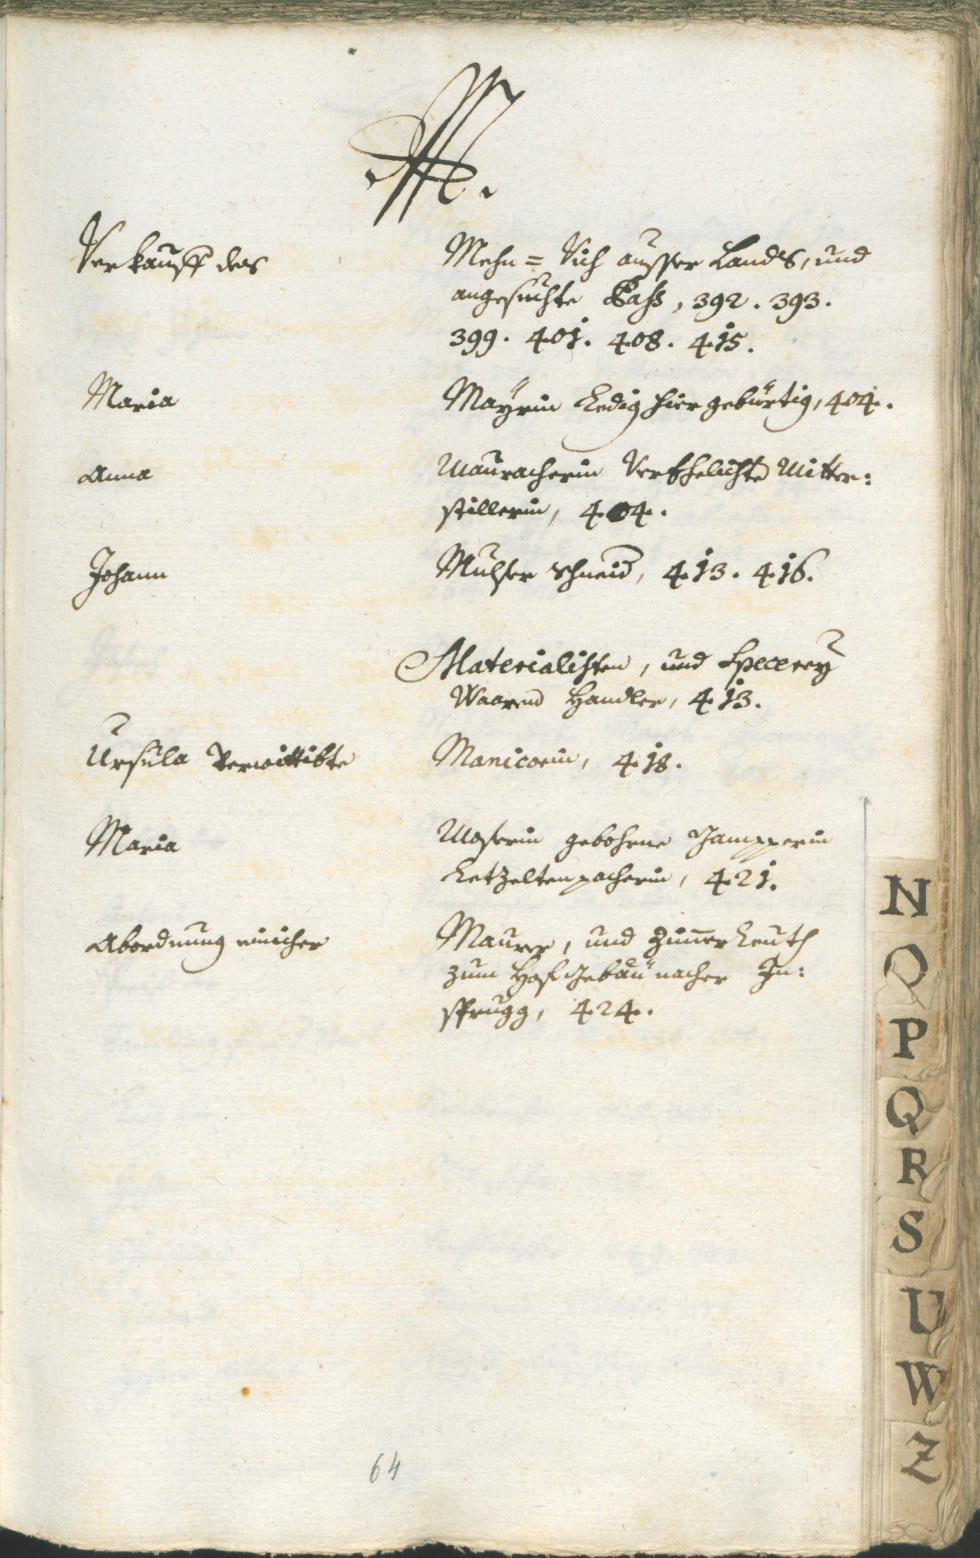 M.
Verkauff des Mehn= Vich ausser Lands, und
angesuchte Pass, 392. 393.
399. 401. 408. 415.
Maria Mayrin Ledig hier gebürtig, 404.
Anna Mauracherin Verehelichte Mitter:
stillerin, 404.
Johann Muhser Schneid, 413. 416.
Materialisten, und Specerey
Waaren Handler, 413.
Ursula Verwittibte Manicorin, 418.
Maria Moserin gebohrne
Letzeltenpacherin, 421.
Abordnung einicher Maurer, und Zimer Leuth
zum Hof Gebäu nacher In:
sprugg, 424.
64
N
O
P
Q
R
S
U
W
Z